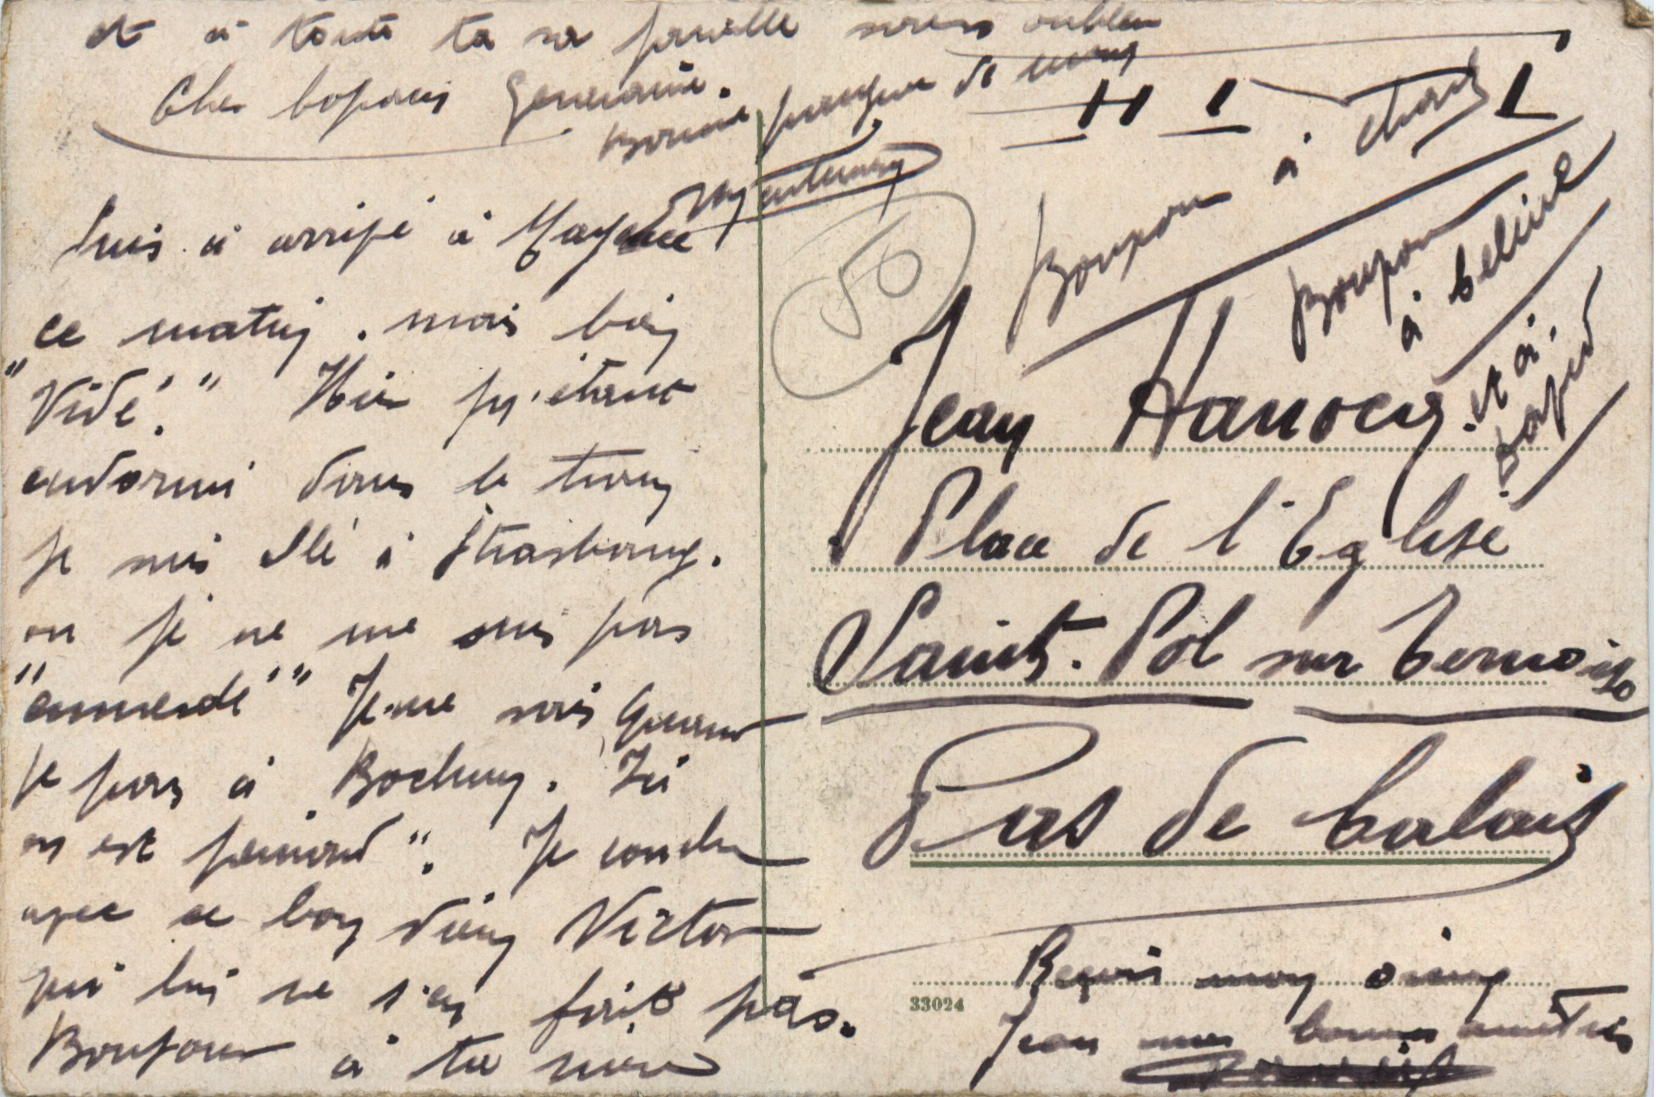 et à toute ta famille sans oublier
Cher copain Germaine.
Bonne de
Suis arrivé à Mayence
ce matin. mais bien
"Vidé." Hier m'étant
endormi dans le train
je suis allé à Strasbourg.
où je ne me suis pas
"emmerdé" Je ne sais quand
je pars à Bochum. Ici
on est peinard". Je couche
avec ce bon vieux Victor
qui lui ne s'en fait pas.
Bonjour à ta mère
50
Bonjour à
Bonjour
à Céline
et à
Jean Hanocq.
Place de l'Eglise
Saint. Pol sur Ternoise
Pas de Calais
33024
Reçois mon
Jean mes bonnes amitiés